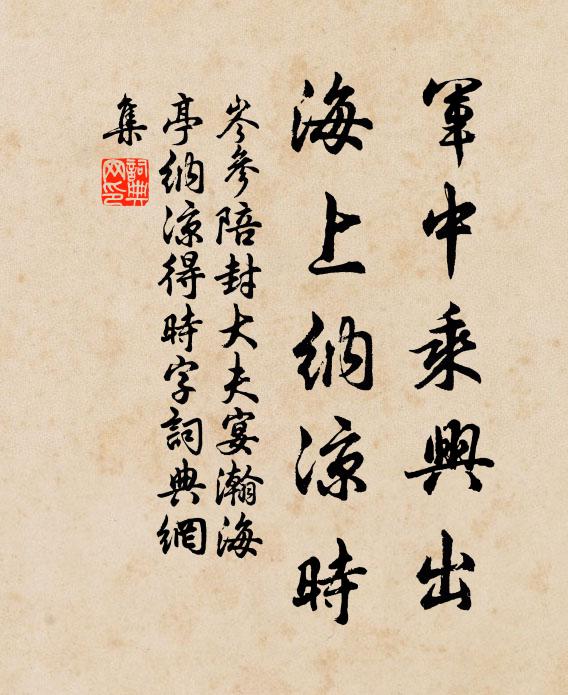 軍中乘興出
海上納涼時
岑參陪封大夫宴瀚海
亭納涼得時字詞典網
集
詞典
网印